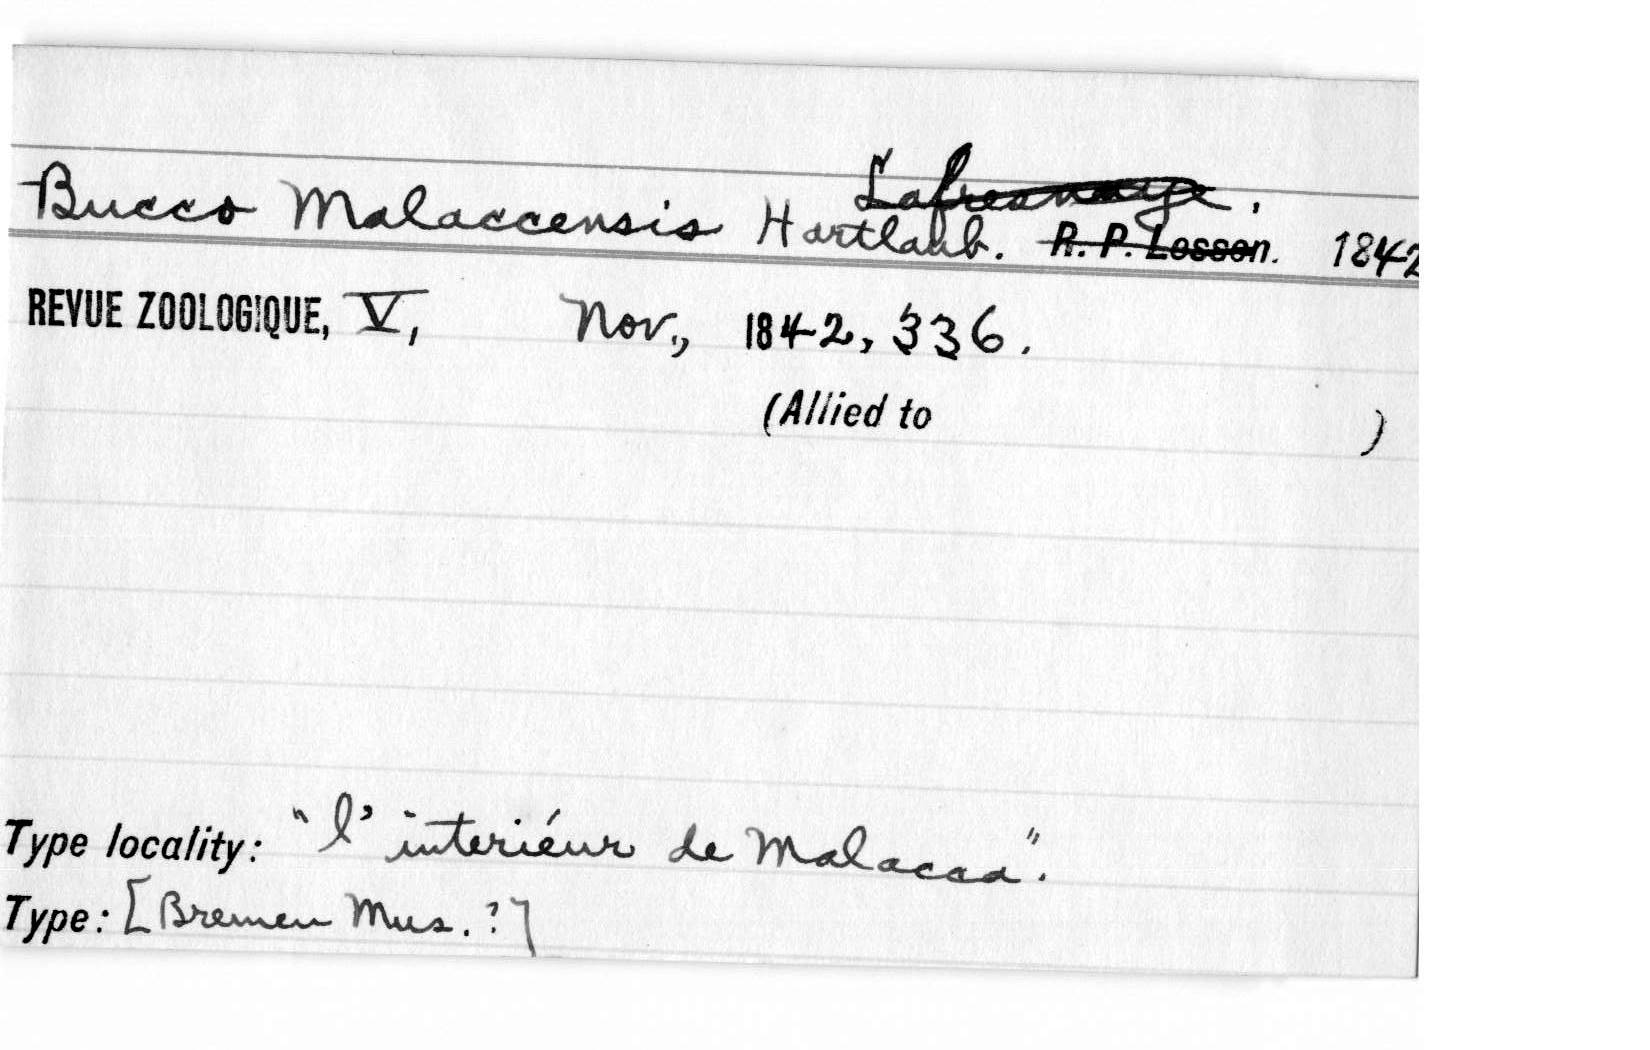 Lafresnaye.
Bucco Malaccensis Hartlaub. R. P. Lesson. 1842
REVUE ZOOLOGIQUE, V, Nov., 1842, 336.
(Allied to )
Type locality: "l'interiéur de Malacca".
Type: [Bremen Mus. ?]